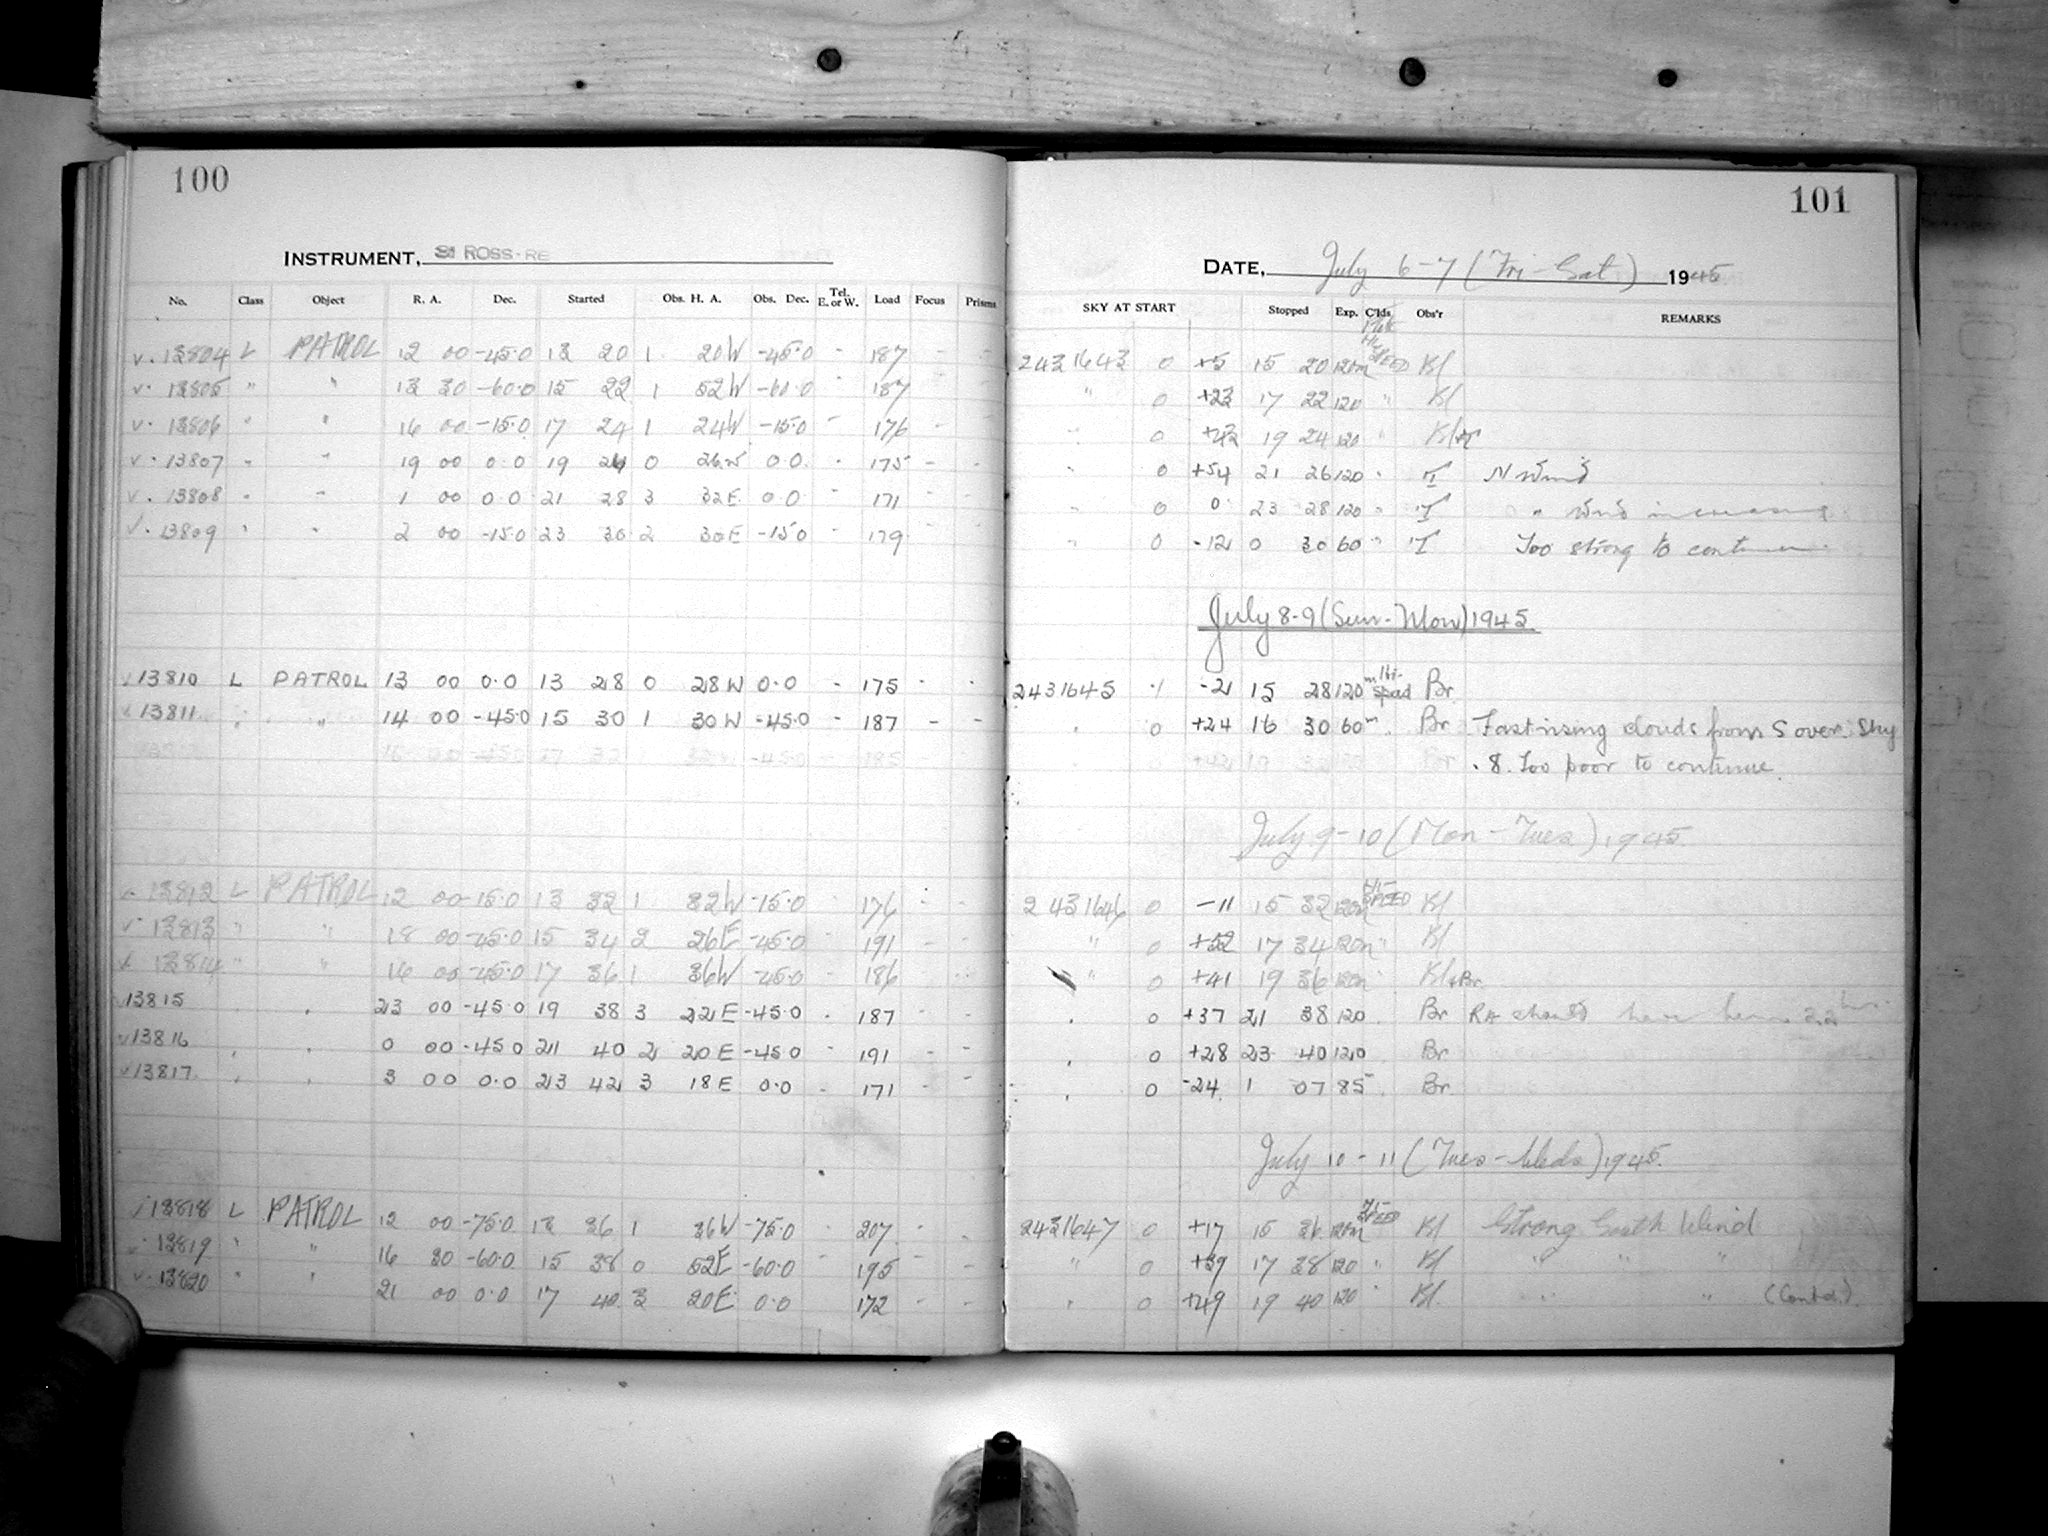 100
INSTRUMENT, ROSS-RE
No. Class Object R. A. Dec. Started Obs. H. A. Obs. Dec. Tel. E. or W. Load Focus Prisms
13804 L PATROL 12 00 -45.0 13 20 1 20W -45.0 - 187 - -
13805 " " 13 30 -60.0 15 22 1 52W -60.0 - 187
13806 " " 16 00 -15.0 17 24 1 24W -15.0 - 176 -
13807 " " 19 00 0.0 19 26 0 26W 0.0 - 175 - -
13808 " " 1 00 0.0 21 28 3 32E 0.0 - 171 - -
13809 " " 2 00 -15.0 23 30 2 30E -15.0 - 179 - -
13810 L PATROL 13 00 0.0 13 28 0 28W 0.0 - 175 - -
13811 " " 14 00 -45.0 15 30 1 30W -45.0 - 187 - -
13812 L PATROL 12 00 -15.0 13 32 1 32W -15.0 176 - -
13813 " " 18 00 -45.0 15 34 2 26E -45.0 - 191 - -
13814 " " 16 00 -45.0 17 36 1 36W -45.0 - 186 - -
13815 " " 23 00 -45.0 19 38 3 22E -45.0 - 187 - -
13816 " " 0 00 -45.0 21 40 2 20E -45.0 - 191 - -
13817 " " 3 00 0.0 23 42 3 18E 0.0 - 171 - -
13818 L PATROL 12 00 -75.0 13 36 1 36W -75.0 - 207 - -
13819 " " 16 30 -60.0 15 38 0 52E -60.0 - 195 - -
13820 " " 21 00 0.0 17 40 3 20E 0.0 172 - -
101
DATE, July 6-7 (Fri-Sat) 1945
SKY AT START Stopped Exp. C'lds Obs'r REMARKS
2431643 0 +5 15 20 120m SPEED Kl
" 0 +23 17 22 120 " Kl
" 0 +42 19 24 120 " Kl
" 0 +54 21 26 120 " T N wind
" 0 0 23 28 120 " T " wind increasing
" 0 -12 0 30 60 " T Too strong to continue
July 8-9 (Sun-Mon) 1945
2431645 .1 -2 15 28 120m Hi-speed Br
" 0 +24 16 30 60m Br Fast rising clouds from S over. Sky
.8. Too poor to continue.
July 9-10 (Mon-Tues) 1945
2431646 0 -11 15 32 120m HI-SPEED Kl
" 0 +52 17 34 120m " Kl
" 0 +41 19 36 120m " Kl+Br
" 0 +37 21 38 120 Br RA should have been 22hrs
" 0 +28 23 40 120 Br
" 0 -24 1 07 85 Br
July 10-11 (Tues-Weds) 1945
2431647 0 +17 15 36 120m HI-SPEED Kl Strong South Wind
" 0 +39 17 38 120 " Kl " " "
" 0 +49 19 40 120 " Kl " " (Contd.)